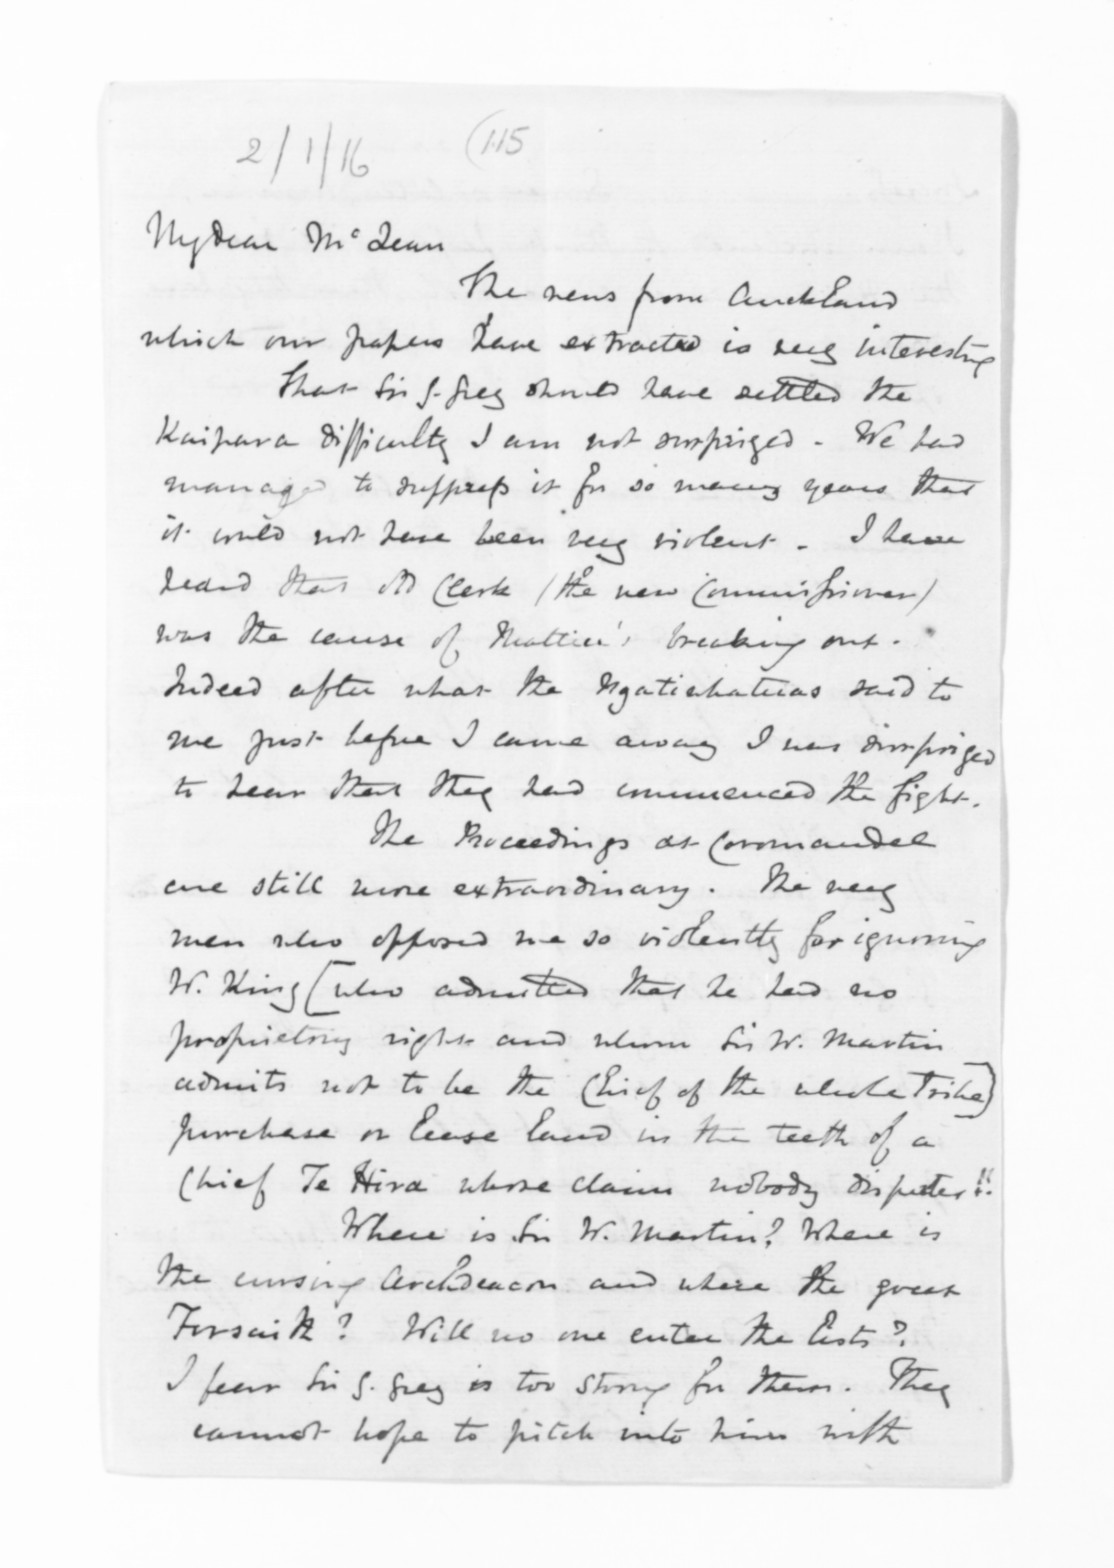 2/1/16 (115
My dear McLean
The news from Auckland
which our papers have extracted is very interesting
That Sir G. Grey should have settled the
Kaipara difficulty I am not surprized - We had
managed to suppress it for so many years that
it could not have been very violent - I have
heard that old Clerk (the new Commissioner)
was the cause of Mattiu's breaking out.
Indeed after what the Ngatiwhatuas said to
me just before I came away I was surprized
to hear that they had commenced the fight.
The Proceedings at Coromandel
are still more extraordinary. The very
men who opposed me so violently for ignoring
W. King [who admitted that he had no
proprietory right and whom Sir W. Martin
admits not to be the Chief of the whole Tribe]
purchase or lease land in the teeth of a
Chief Te Hira whose claim nobody disputes!!
Where is Sir W. Martin? Where is
the cursing Archdeacon and where the great
Forsaith? Will no one enter the lists?
I fear Sir G. Grey is too strong for them. They
cannot hope to pitch into him with